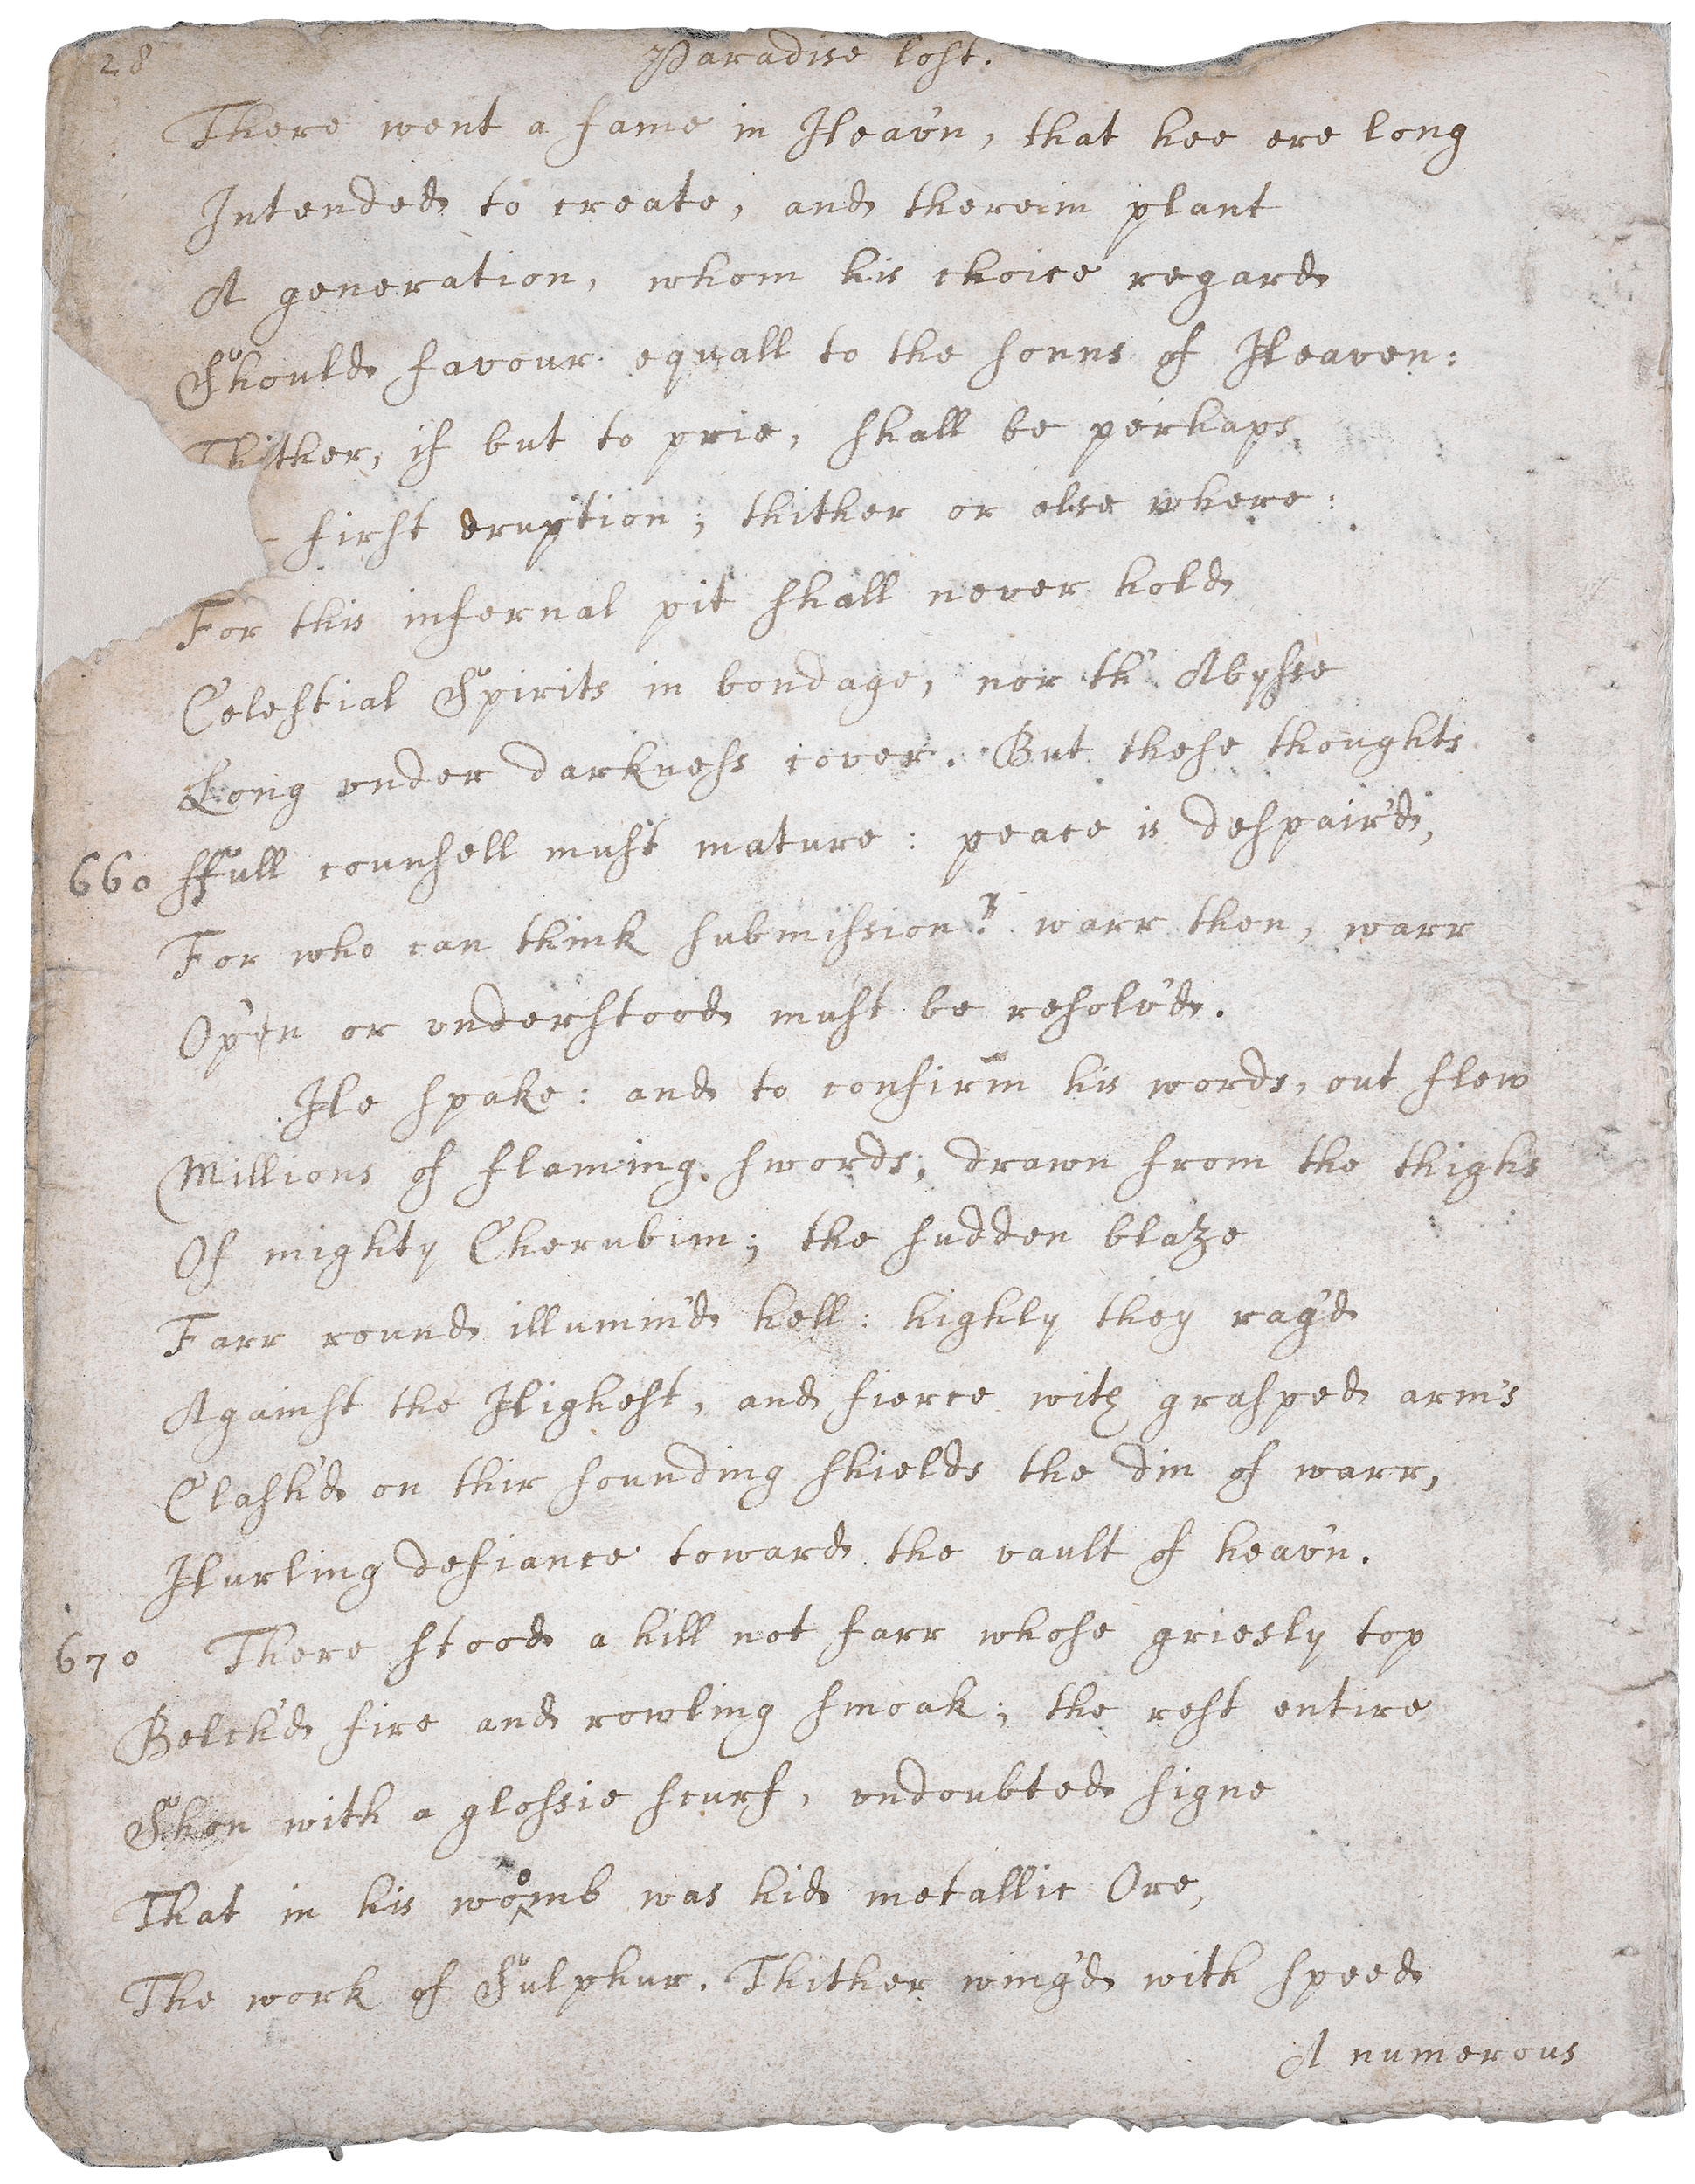 28 Paradise lost.
There went a fame in Heav'n, that hee ere long
Intended to create, and therein plant
A generation, whom his choice regard
Should favour equall to the sonns of Heaven:
Thither, if but to prie, shall be perhaps
first eruption; thither or else where:
For this infernal pit shall never hold
Celestial Spirits in bondage, nor th' Abysse
Long under darkness cover. But these thoughts
660 ffull counsell must mature: peace is despair'd,
For who can think submission? warr then, warr
Open or understood must be resolv'd.
He spake: and to confirm his words, out flew
Millions of flaming swords, drawn from the thighs
Of mighty Cherubim; the sudden blaze
Farr round illumin'd hell: highly they rag'd
Against the Highest, and fierce with grasped arm's
Clash'd on thir sounding shields the din of warr,
Hurling defiance toward the vault of heav'n.
670 There stood a hill not farr whose griesly top
Belch'd fire and rowling smoak; the rest entire
Shon with a glossie scurf, undoubted signe
That in his womb was hid metallic Ore,
The work of Sulphur. Thither wing'd with speed
A numerous